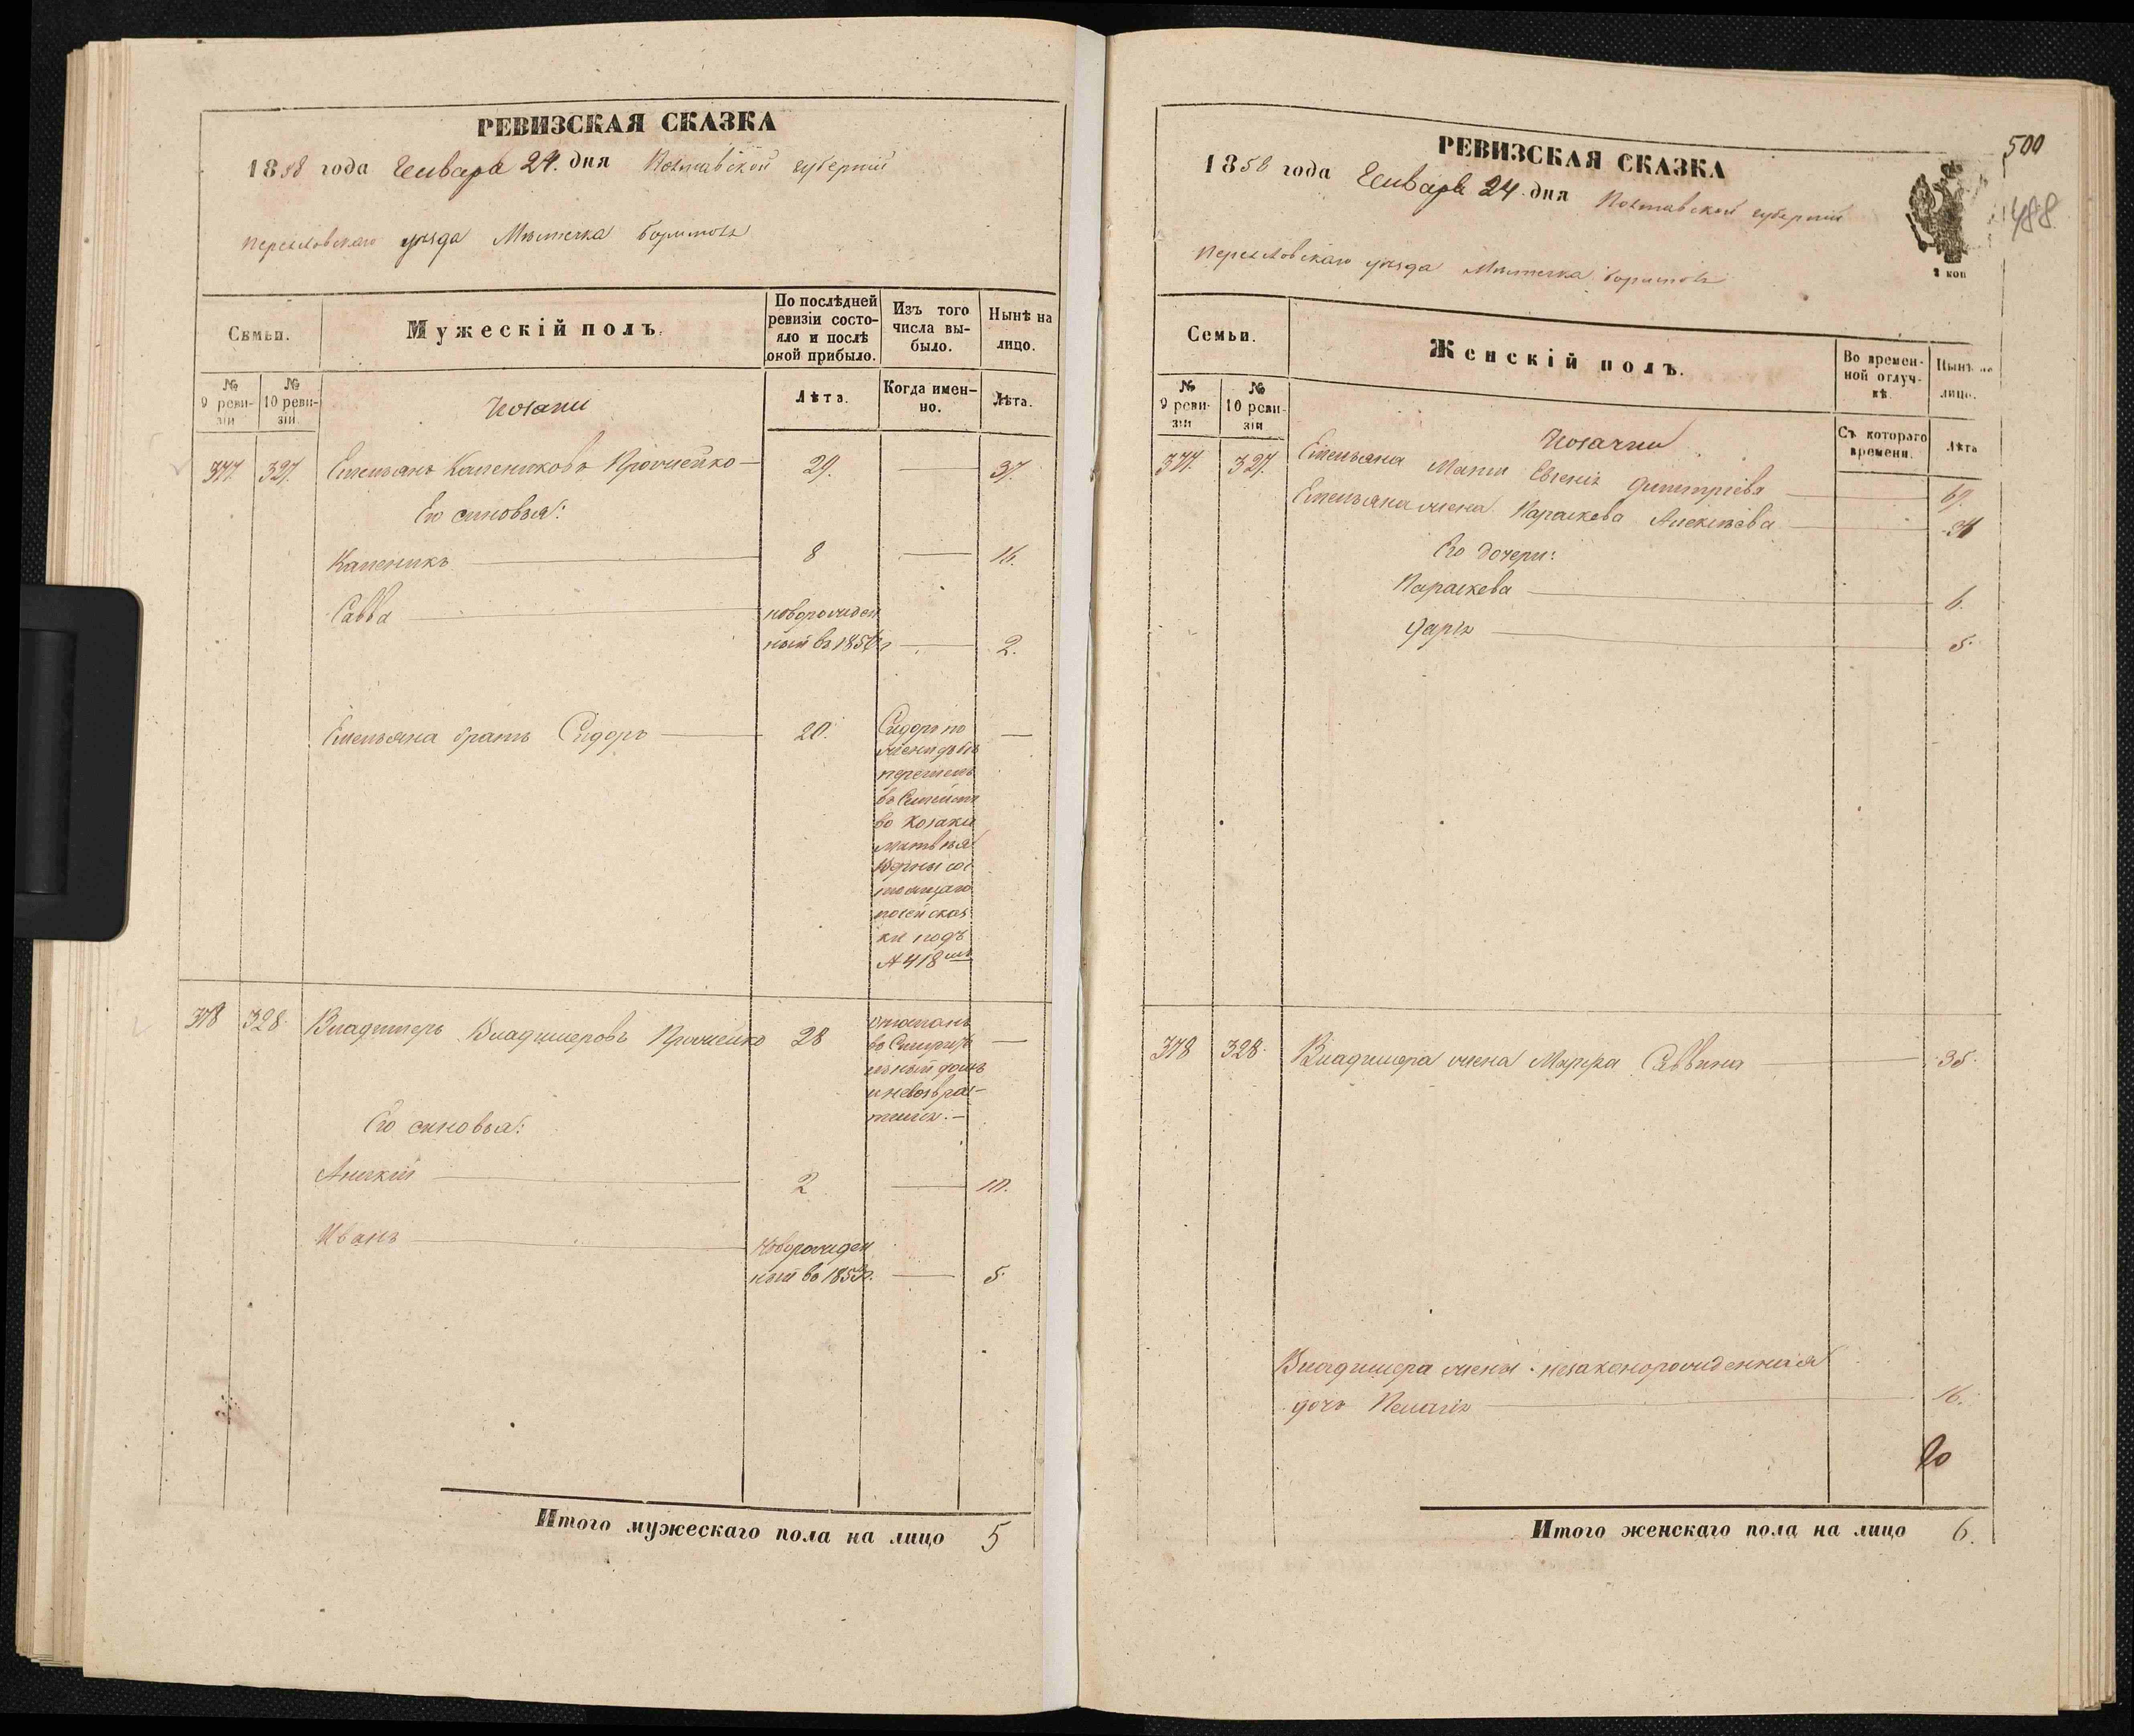 РЕВИЗСКАЯ СКАЗКА
1858 года Января 24. дня Полтавской губернии
Переяловскаго уѣзда Мѣстечка
Семьи.
Мужескій полъ.
По послѣдней ревизіи состо-
яло и послѣ
оной прибыло.
Изъ того
числа вы-
было.
Нынѣ на
лицо.
№ 9 реви-
зіи
№ 10 реви-
зіи
Козаки
Лѣта.
Когда имен-
но.
Лѣта.
377. 327. Емельянъ Калениковъ Прочейко 29. 37.
Его сыновья:
Каленикъ 8 16.
Савва новорожден
ный въ 1856г 2.
Емельяна братъ Сидоръ 20.
Сидоръ по
перешелъ
въ Семейст
во Козака
Матвѣя
стоящаго
по сей сказ
ки подъ
№ 418
378 328. Владимеръ Владимеровъ Прочейко 28
отданъ
ный домъ
и невозвра-
тился.
Его сыновья:
2 10.
Иванъ Новорожден
ный въ 1853г. 5.
Итого мужескаго пола на лицо 5
500
488
РЕВИЗСКАЯ СКАЗКА
1858 года Января 24. дня Полтавской губернии
Переяловскаго уѣзда Мѣстечка
2 коп
Семьи.
Женскій полъ.
Во времен-
ной отлуч-
кѣ.
Нынѣ на
лицо.
№ 9 реви-
зіи
№ 10 реви-
зіи
Козачки
Съ котораго
времени.
Лѣта
377. 327. Емельяна Мати Евгенія Димитріева 67.
Емельяна жена Параскева Алексѣева 34
Его дочери:
Параскева 6.
Дарія 5.
378 328. Владимера жена Марфа Саввина 35.
Владимера жены незаконорожденная
дочь Пелагія 16.
Итого женскаго пола на лицо 6.